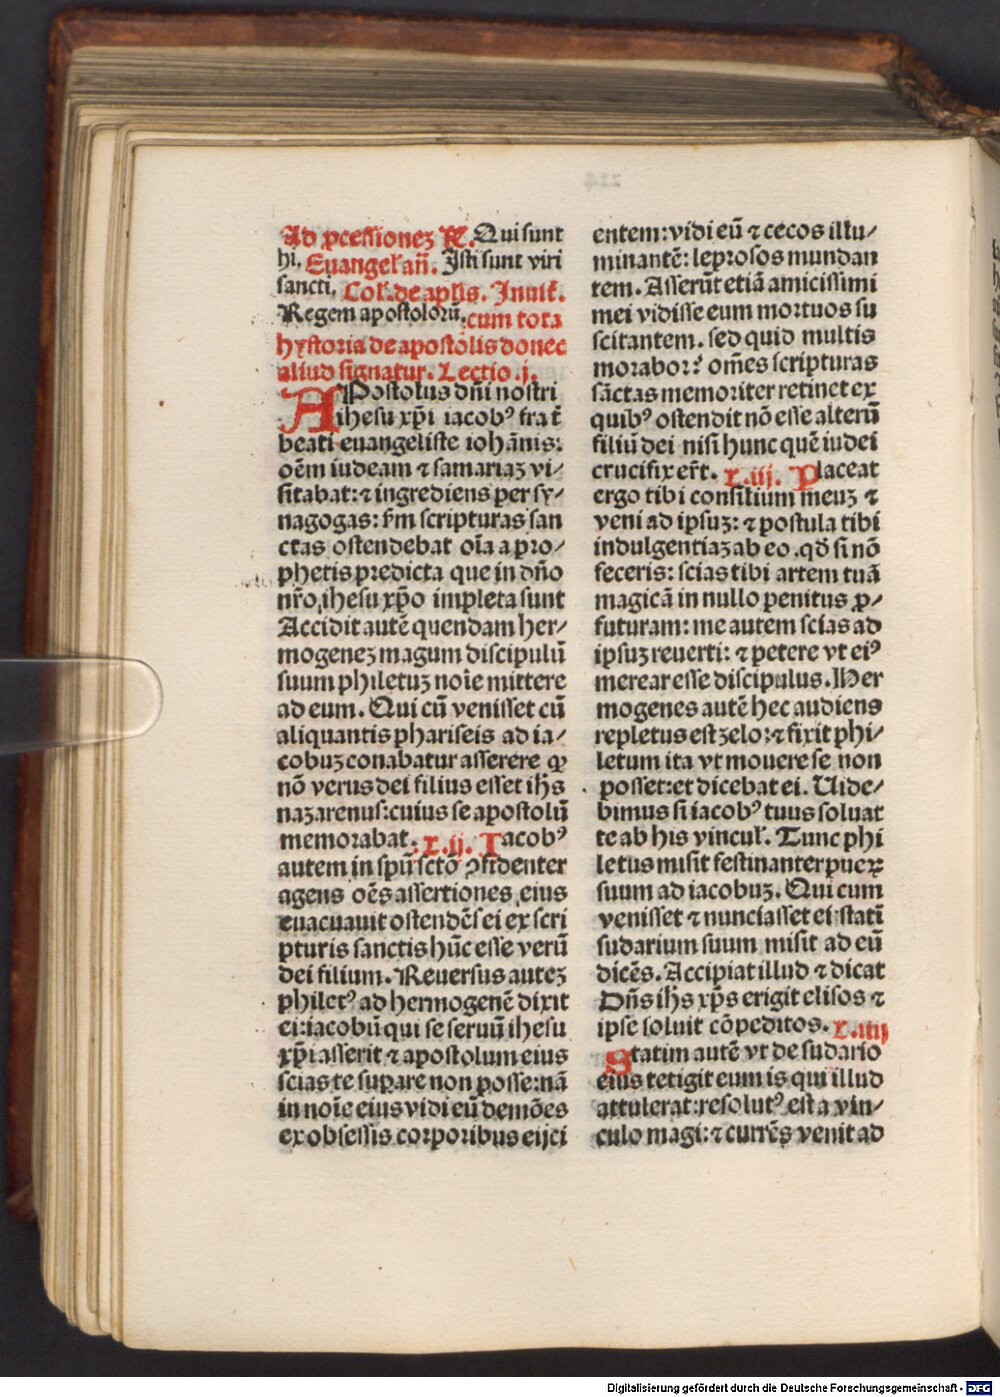 Ad ꝓcessionez ℟. Qui sunt
hi. Euangel' añ. Isti sunt viri
sancti. Col'. de aplis. Inuit̄.
Regem apostolorū. cum tota
hystoria de apostolis donec
aliud signatur. Lectio .j.
APostolus dn̄i nostri
ihesu xp̄i iacobꝰ frat̄
beati euangeliste iohānis:
oēm iudeam ⁊ samariaꝫ vi⸗
sitabat: ⁊ ingrediens per sy⸗
nagogas: ẜm scripturas san
ctas ostendebat oīa a pro⸗
phetis predicta que in dn̄o
nr̄o ihesu xp̄o impleta sunt
Accidit autē quendam her⸗
mogeneꝫ magum discipulū
suum philetuꝫ noīe mittere
ad eum. Qui cū venisset cū
aliquantis phariseis ad ia⸗
cobuꝫ conabatur asserere ꝙ
nō verus dei filius esset ih̄s
nazarenus: cuius se apostolū
memorabat. L.ij. Iacobꝰ
autem in spū sctō ꝯfidenter
agens oēs assertiones eius
euacuauit ostendēs ei ex scri
pturis sanctis hūc esse verū
dei filium. Reuersus auteꝫ
philetꝰ ad hermogenē dixit
ei: iacobū qui se seruū ihesu
xp̄i asserit ⁊ apostolum eius
scias te suꝑare non posse: nā
in noīe eius vidi eū demōes
ex obsessis corporibus eijci
entem: vidi eū ⁊ cecos illu⸗
minantē: leprosos mundan
tem. Asserūt etiā amicissimi
mei vidisse eum mortuos su
scitantem. sed quid multis
morabor? om̄es scripturas
sāctas memoriter retinet ex
quibꝰ ostendit nō esse alterū
filiū dei nisi hunc quē iudei
crucifixer̄t. L.iij. Placeat
ergo tibi consilium meuꝫ ⁊
veni ad ipsuꝫ: ⁊ postula tibi
indulgentiaꝫ ab eo. qd̄ si nō
feceris: scias tibi artem tuā
magicā in nullo penitus ꝓ⸗
futuram: me autem scias ad
ipsuꝫ reuerti: ⁊ petere vt eiꝰ
merear esse discipulus. Her
mogenes autē hec audiens
repletus est zelo: ⁊ fixit phi⸗
letum ita vt mouere se non
posset: et dicebat ei. Uide⸗
bimus si iacobꝰ tuus soluat
te ab his vincul'. Tunc phi
letus misit festinanter pueꝝ
suum ad iacobuꝫ. Qui cum
venisset ⁊ nunciasset ei: statī
sudarium suum misit ad eū
dicēs. Accipiat illud ⁊ dicat
Dn̄s ih̄s xp̄s erigit elisos ⁊
ipse soluit cōpeditos. L.iiij
Statim autē vt de sudario
eius tetigit eum is qui illud
attulerat: resolutꝰ est a vin⸗
culo magi: ⁊ currēs venit ad
Digitalisierung gefördert durch die Deutsche Forschungsgemeinschaft - DFG